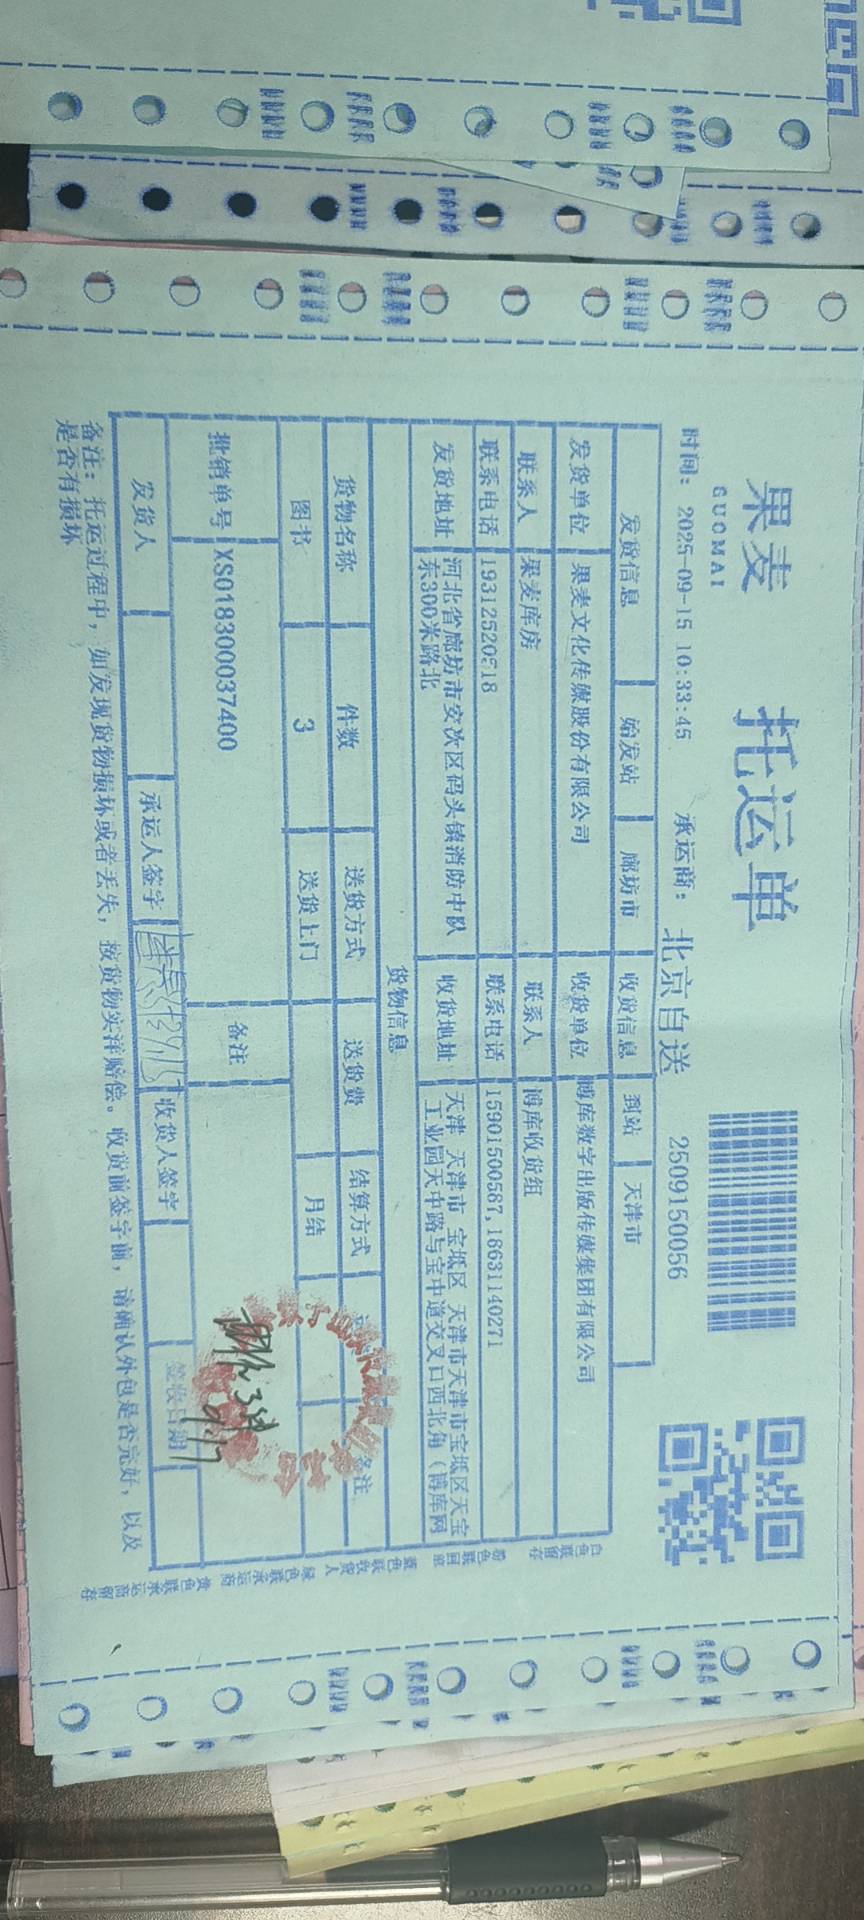 果麦
GUOMAI
托运单
时间: 2025-09-15 10:33:45
承运商: 北京自送
2509150056
发货信息 始发站 廊坊市 收货信息 到站 天津市
发货单位 果麦文化传媒股份有限公司 收货单位 博库数字出版传媒集团有限公司
联系人 果麦库房 联系人 博库收货组
联系电话 19312520518 联系电话 15901500587,18631140271
发货地址 河北省廊坊市安次区码头镇消防中队
东300米路北
收货地址 天津 天津市 宝坻区 天津市天津市宝坻区天宝
工业园天中路与宝中道交叉口西北角(博库网
货物信息
货物名称 件数 送货方式 送货费 结算方式 备注
图书 3 送货上门 月结
批销单号 XS018300037400 备注
9.17
发货人 承运人签字 收货人签字 签收日期
备注: 托运过程中, 如发现货物损坏或者丢失, 按货物实洋赔偿。收货前签字前, 请确认外包是否完好, 以及
是否有损坏
白色联留存 粉色联回单 蓝色联收货人 绿色联承运商 黄色联承运商留存